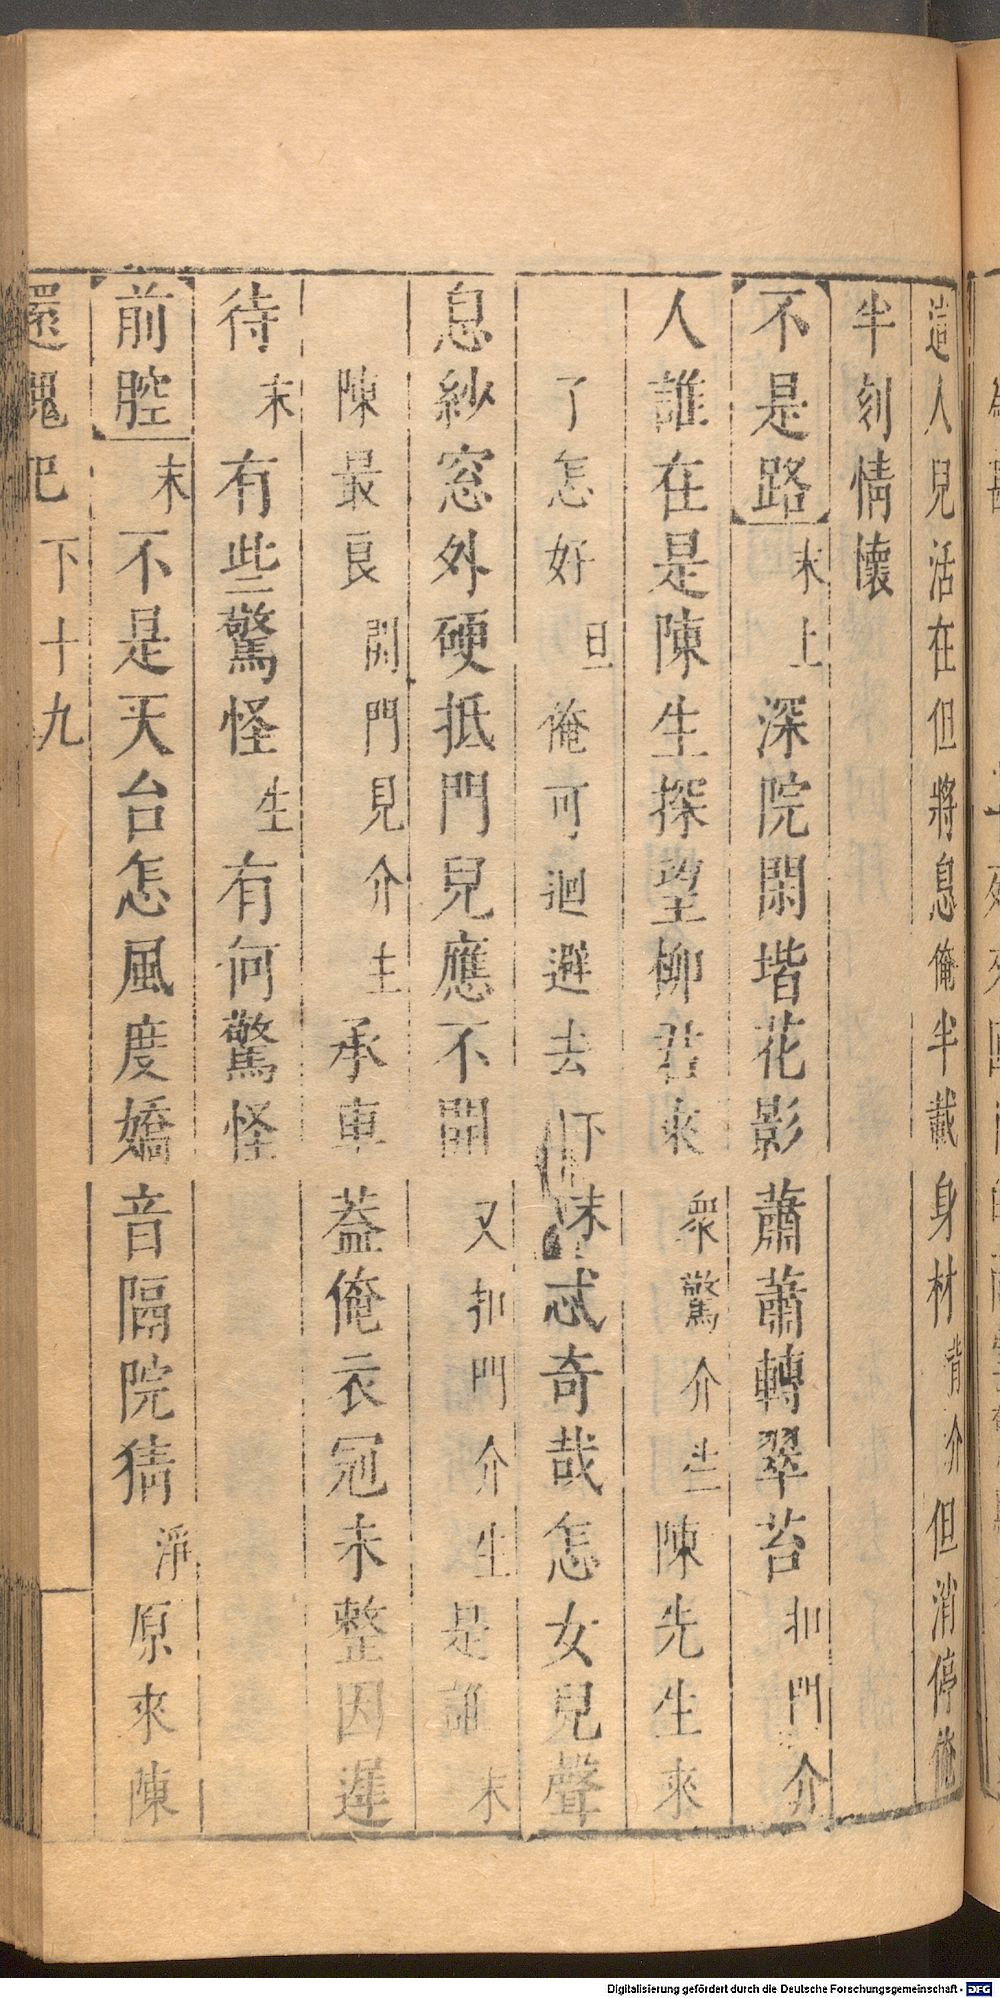 這人兒活在但將息俺半載身材背介但消停俺
半刻情懷
不是路末上深院閑堦花影蕭蕭轉翠苔扣門介
人誰在是陳生探望柳君來衆驚介生陳先生來
了怎好旦俺可迴避去下末忒奇哉怎女兒聲
息紗窓外硬抵門兒應不開又扣門介生是誰末
陳最良開門見介生承車蓋俺衣冠未整因遲
待末有些驚怪生有何驚怪
前腔末不是天台怎風度嬌音隔院猜淨原來陳
還魂記下十九
Digitalisierung gefördert durch die Deutsche Forschungsgemeinschaft - DFG